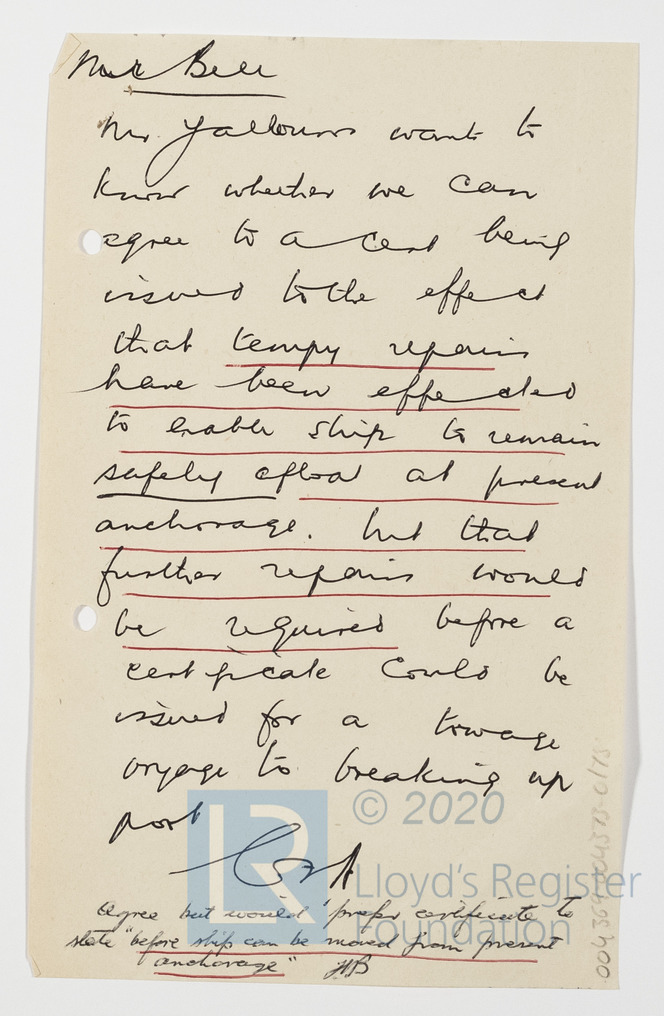 Mr Bell
Mr Yallouris wants to
know whether we can
agree to a cert being
issued to the effect
that tempy repairs
have been effected
to enable ship to remain
safely afloat at present
anchorage. but that
further repairs would
be required before a
certificate could be
issued for a towage
voyage to breaking up
port
agree but would prefer certificate to
state "before ship can be moved from present
anchorage" HB
LR
© 2020
Lloyd's Register
Foundation